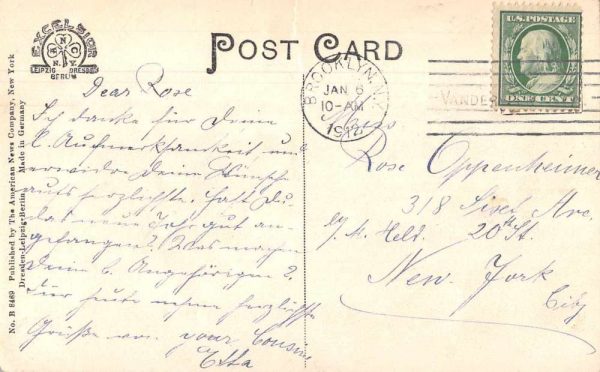 POST CARD
EXCELSIOR
A N C
N.Y.
LEIPZIG DRESDEN
BERLIN
No. B 8469 Published by The American News Company, New York
Dresden-Leipzig-Berlin Made in Germany
U.S. POSTAGE
ONE CENT
BROOKLYN, N.Y.
JAN 6
10-AM
VANDE
Dear Rose
Ich danke für Deine
l. Aufmerksamkeit, und
erwidre Deine Wünsche
aufs herzlichste. Hast Du
das neue Jahr gut an-
gefangen? Was machen
Deine l. Angehörigen?
Für heute nehme herzlichste
Grüße von your Cousin
Etta
Miss
Rose Oppenheimer
318 Ave.
c/o A. Held. 20th St.
New York
City